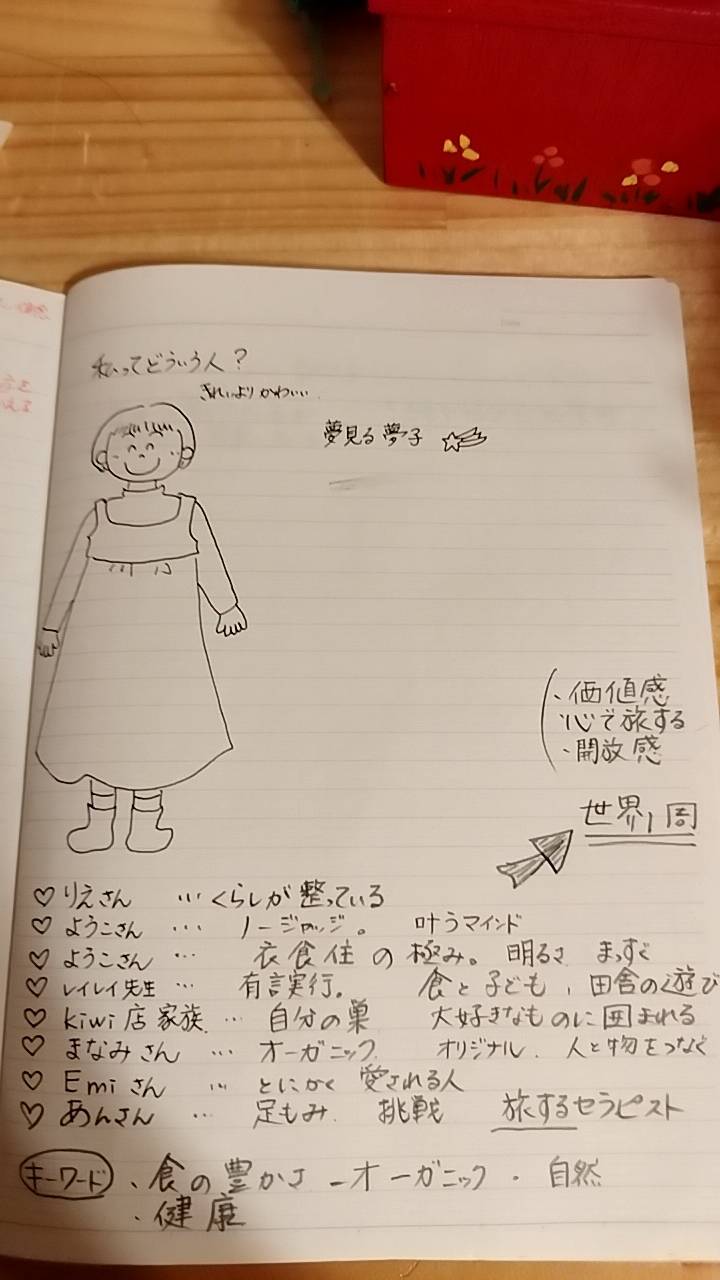 私ってどういう人?
きれいよりかわいい.
夢見る夢子
・価値感
・心で旅する
・開放感
世界1周
♡りえさん …くらしが整っている
♡ようこさん … ノージャッジ。 叶うマインド
♡ようこさん … 衣食住の極み。明るさ まっすぐ
♡レイレイ先生 … 有言実行。 食と子ども、田舎の遊び
♡kiwi店家族… 自分の巣 大好きなものに囲まれる
♡まなみさん … オーガニック オリジナル. 人と物をつなぐ
♡Emiさん … とにかく愛される人
♡あんさん … 足もみ. 挑戦 旅するセラピスト
キーワード ・食の豊かさ-オーガニック・自然
・健康